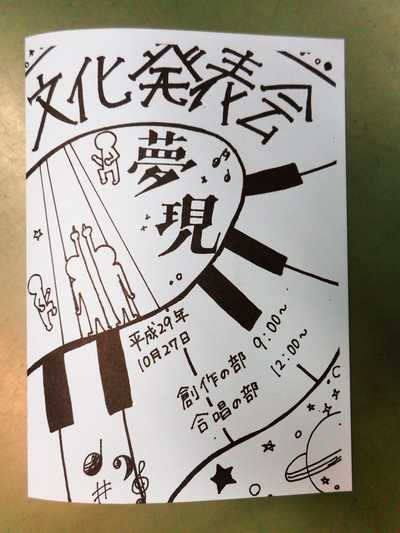 文化発表会
夢
現
平成29年
10月27日
創作の部 9:00~
合唱の部 12:00~